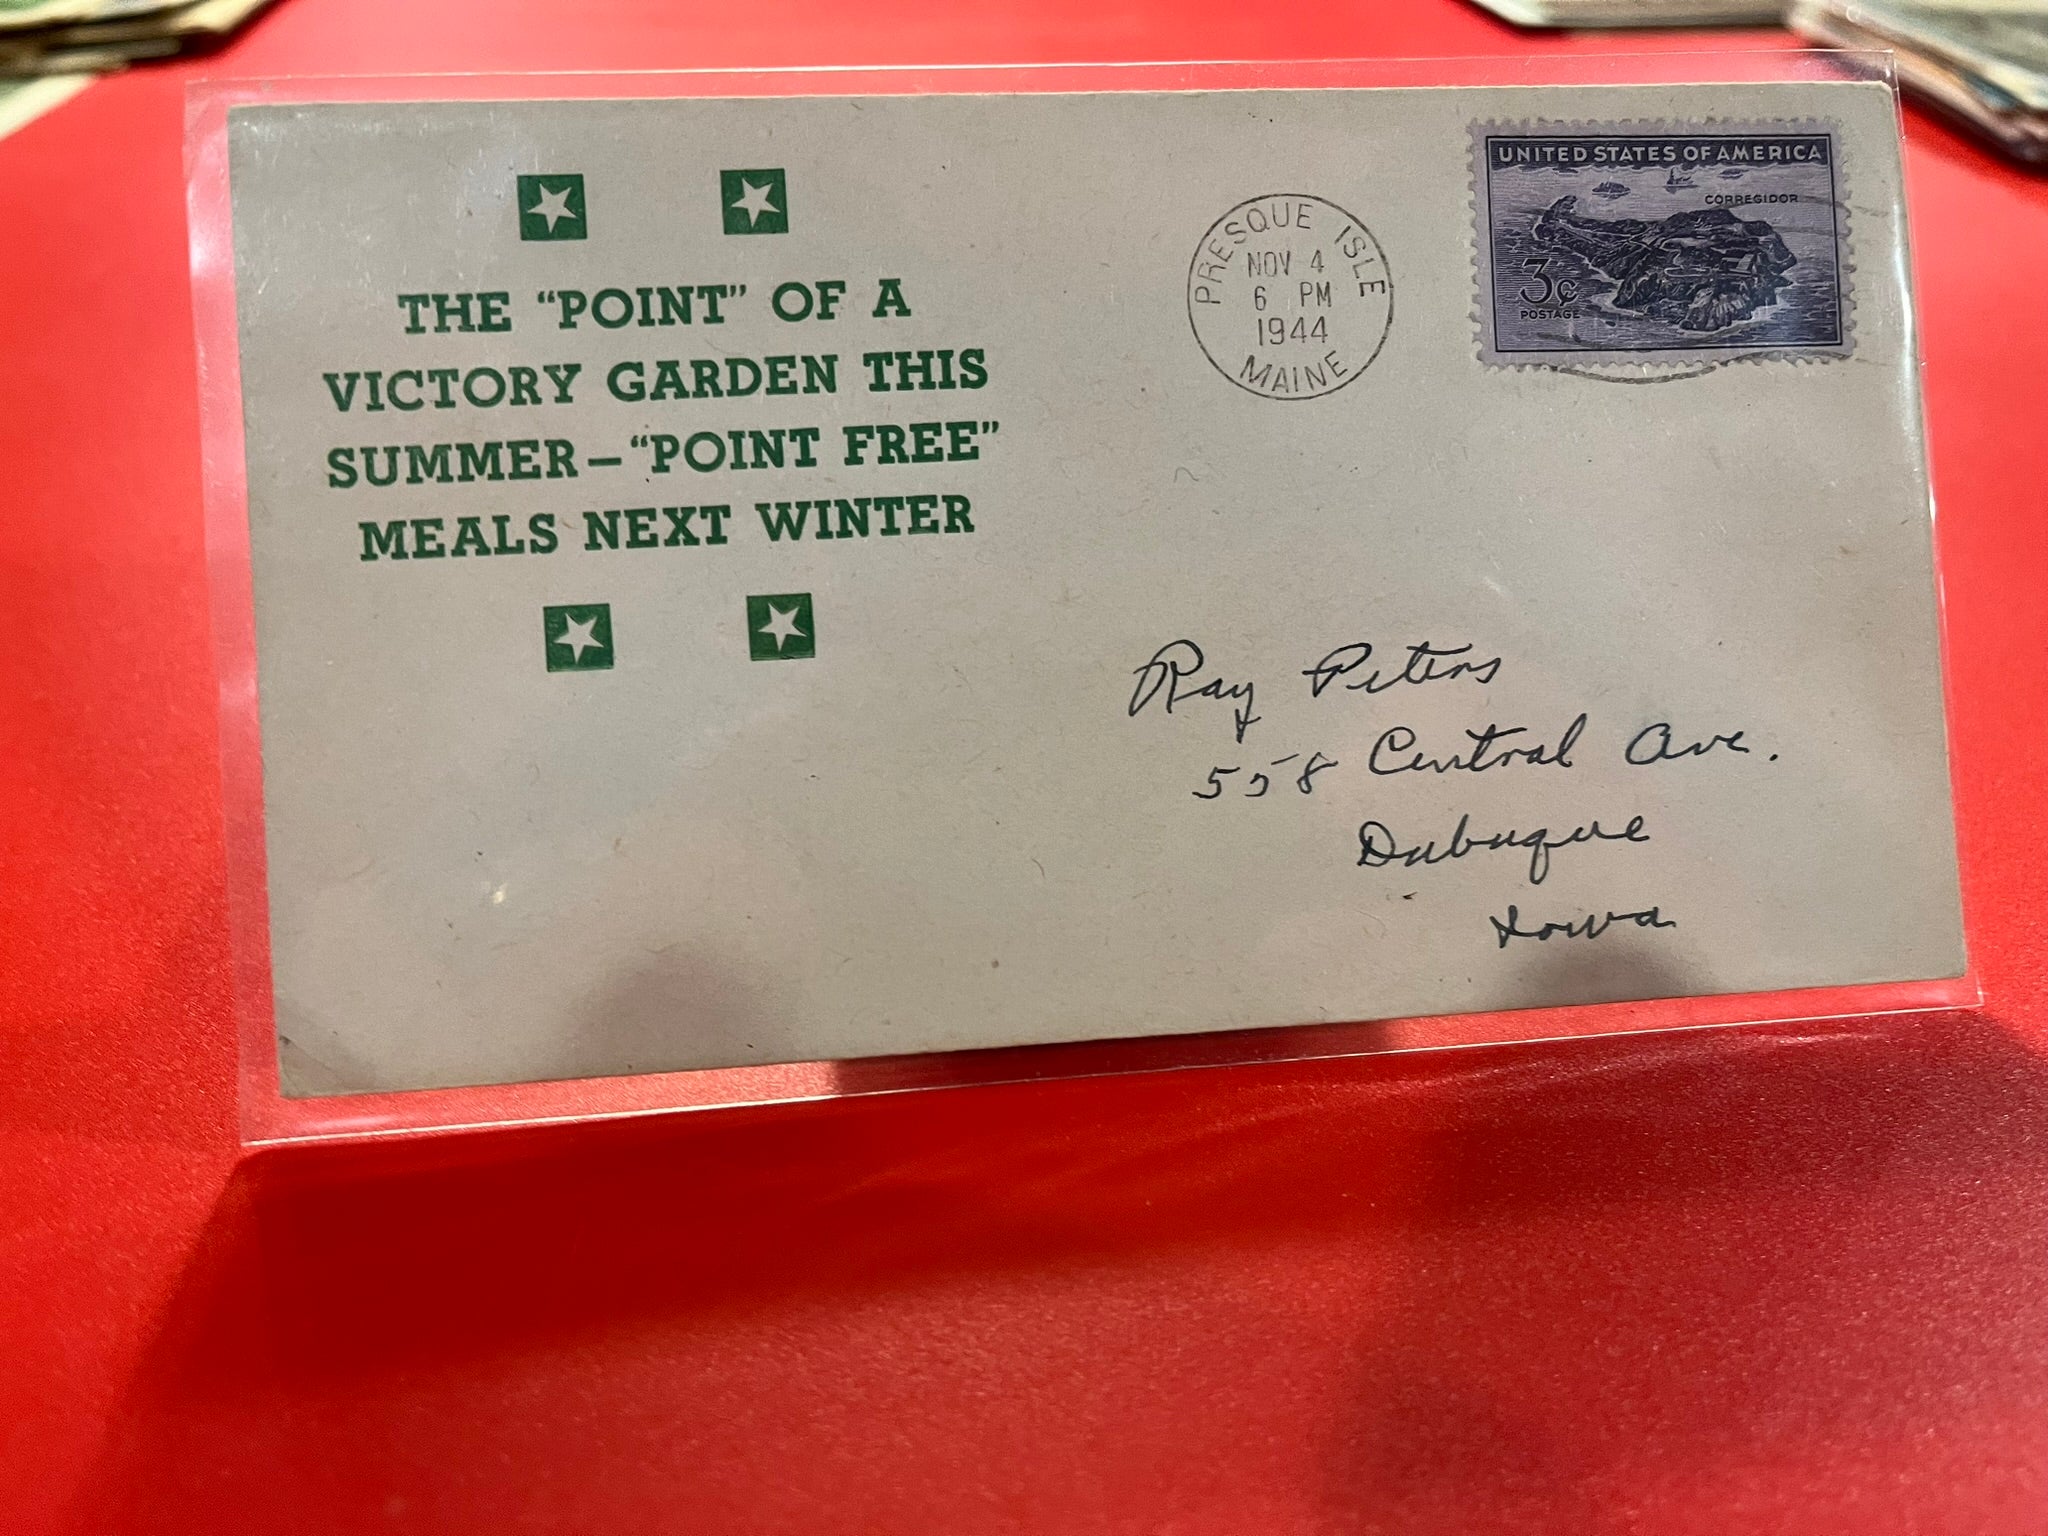 THE “POINT” OF A
VICTORY GARDEN THIS
SUMMER – “POINT FREE”
MEALS NEXT WINTER
PRESQUE ISLE
NOV 4
6 PM
1944
MAINE
UNITED STATES OF AMERICA
CORREGIDOR
3¢
POSTAGE
Ray Peters
558 Central Ave.
Dubuque
Iowa